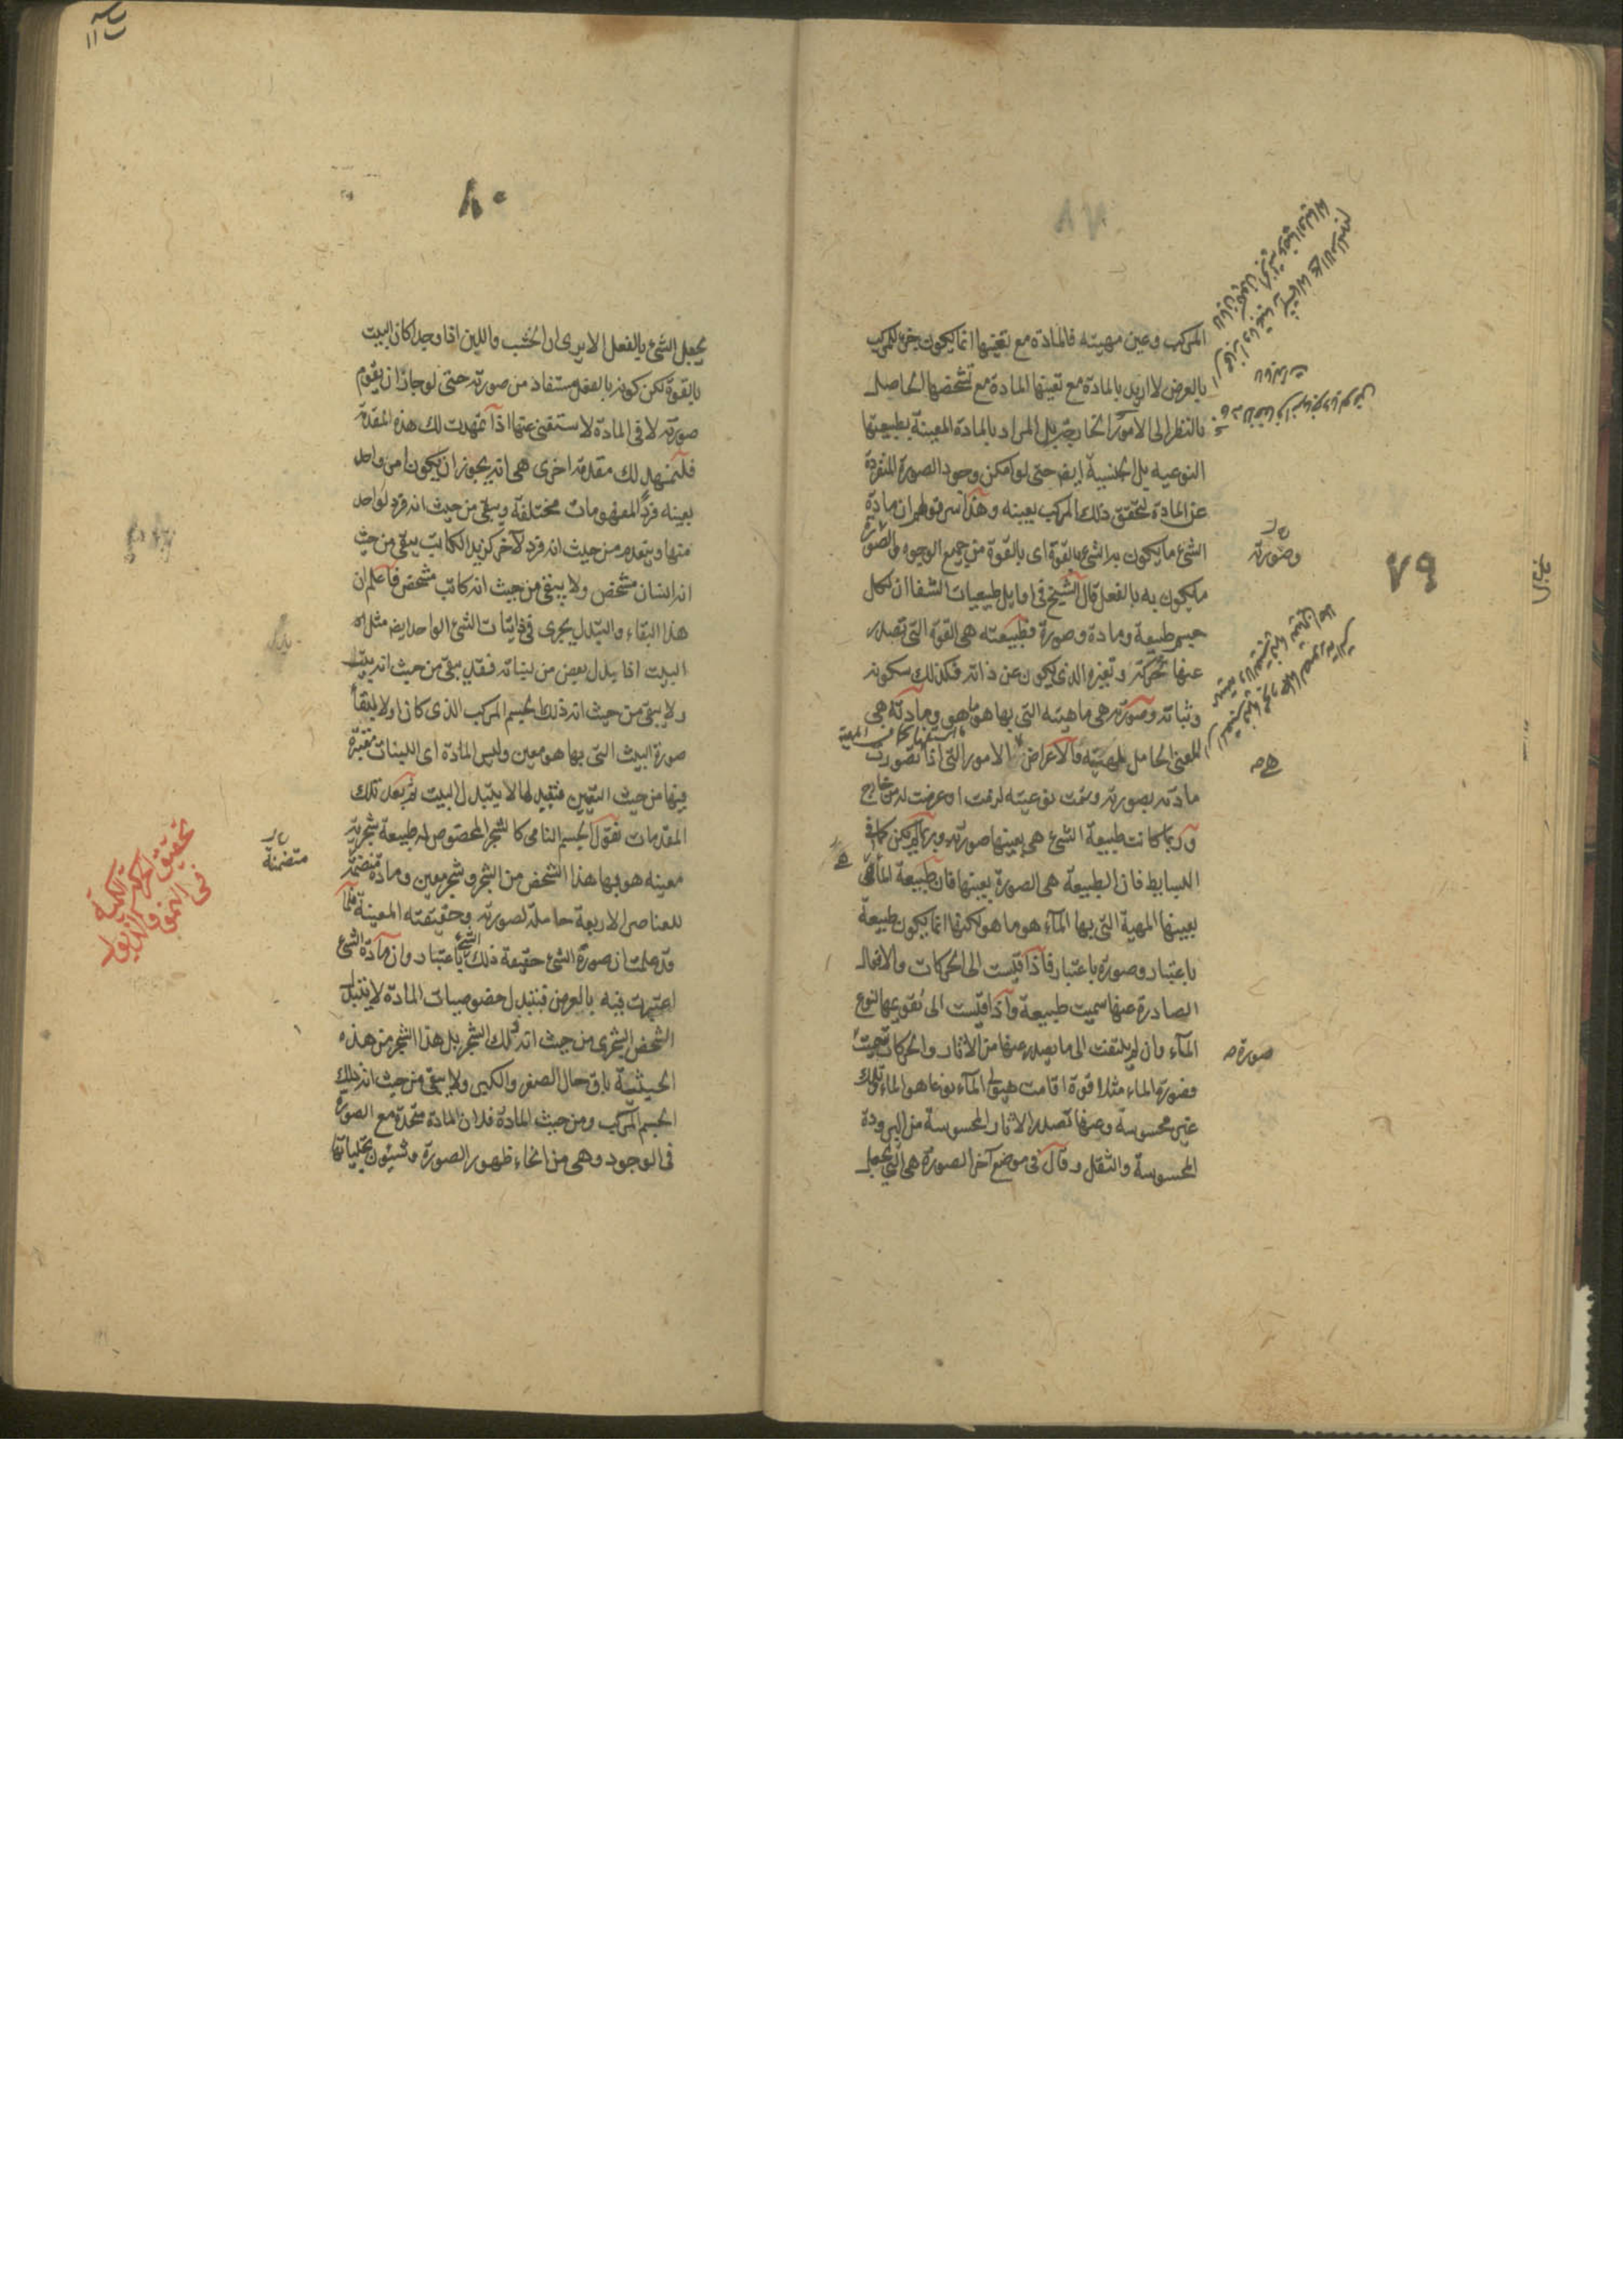 ٧٩
المركب وعين مهيته فالمادة مع تعينها انما يكون جزء للمركب
بالعرض لا اريد بالمادة مع تعينها المادة مع تشخصها الحاصل
بالنظر الى الامور الخارجية بل المراد بالمادة المعينة بطبيعتها
النوعيه بل الجنسية ايض حتى لو امكن وجود الصورة المنفردة
عن المادة لتحقق ذلك المركب بعينه وهذا سر قولهم ان مادة
الشئ ما يكون به الشئ بالقوة اى بالقوة من جميع الوجوه والصورة
ما يكون به بالفعل قال الشيخ فى اوايل طبيعيات الشفا ان لكل
جسم طبيعة ومادة وصورة فطبيعته هى القوة التى تصدر
عنها تحركه وتغيره الذى يكون عن ذاته فكذلك سكونه
وثباته وصورته هى ماهيته التى بها هو ما هو ومادته هى
المعنى الحامل لمهيته والاعراض الامور التى اذا تصورت
مادته بصورته وتمت نوعيته لزمت او عرضت له من خارج
وربما كانت طبيعة الشئ هى بعينها صورته وربما لم يكن كما فى
البسايط فان الطبيعة هى الصورة بعينها فان طبيعة الماء هى
بعينها المهية التى بها الماء هو ما هو لكنها انما يكون طبيعة
باعتبار وصورة باعتبار فاذا قيست الى الحركات والافعال
الصادرة عنها سميت طبيعة واذا قيست الى تقويمها لنوع
الماء وان لم يلتفت الى ما يصدر عنها من الاثار والحركات سميت
صورة
فصورة الماء مثلا قوة اقامت هيولى الماء نوعا هو الماء وتلك
غير محسوسة وعنها تصدر الاثار المحسوسة من البرودة
المحسوسة والثقل وقال فى موضع آخر الصورة هى التى تجعل
وصورته
٨٠
يجعل الشئ بالفعل الا يرى ان الخشب واللبن اذا وجدا كان البيت
بالقوة لكن كونه بالفعل مستفاد من صورته حتى لو جاز ان يقوم
صورته لا فى المادة لاستغنى عنها اذا تمهدت لك هذه المقدمة
فلتمهد لك مقدمة اخرى هى انه يجوز ان يكون امر واحد
بعينه فردا لمفهومات مختلفة ويبقى من حيث انه فرد لواحد
منها وينعدم من حيث انه فرد لآخر كزيد الكاتب يبقى من حيث
انه انسان مشخص ولا يبقى من حيث انه كاتب مشخص فاعلم ان
هذا البقاء والتبدل يجرى فى ذاتيات الشئ الواحد ايض مثل ان
البيت اذا بدل بعض من لبناته فقد يبقى من حيث انه بيت
ولا يبقى من حيث انه ذلك الجسم المركب الذى كان اولا لبقاء
صورة البيث التى بها هو معين وليس المادة اى اللبنات معتبرة
فيها من حيث التعين فتبدلها لا يتبدل البيت ثم بعد تلك
المقدمات نقول الجسم النامى كالشجر المخصوص له طبيعة شجرية
معينه هو بها هذا الشخص من الشجر وشجر معين ومادة متضمنة
للعناصر الاربعة حاملة لصورته وحقيقته المعينة فلما
قد علمت ان صورة الشئ حقيقة ذلك الشئ باعتبار وان مادة الشئ
اعتبرت فيه بالعرض فبتبدل خصوصيات المادة لا يتبدل
الشخص الشجرى من حيث انه ذلك الشجر بل هذا الشجر من هذه
الحيثية باق حال الصغر والكبر ولا يبقى من حيث انه ذلك
الجسم المركب ومن حيث المادة فلان المادة متحدة مع الصورة
فى الوجود وهى من انحاء ظهور الصورة وشئون تجلياتها
متضمنة
تحقيق الحركة الكمية
فى النمو والذبول